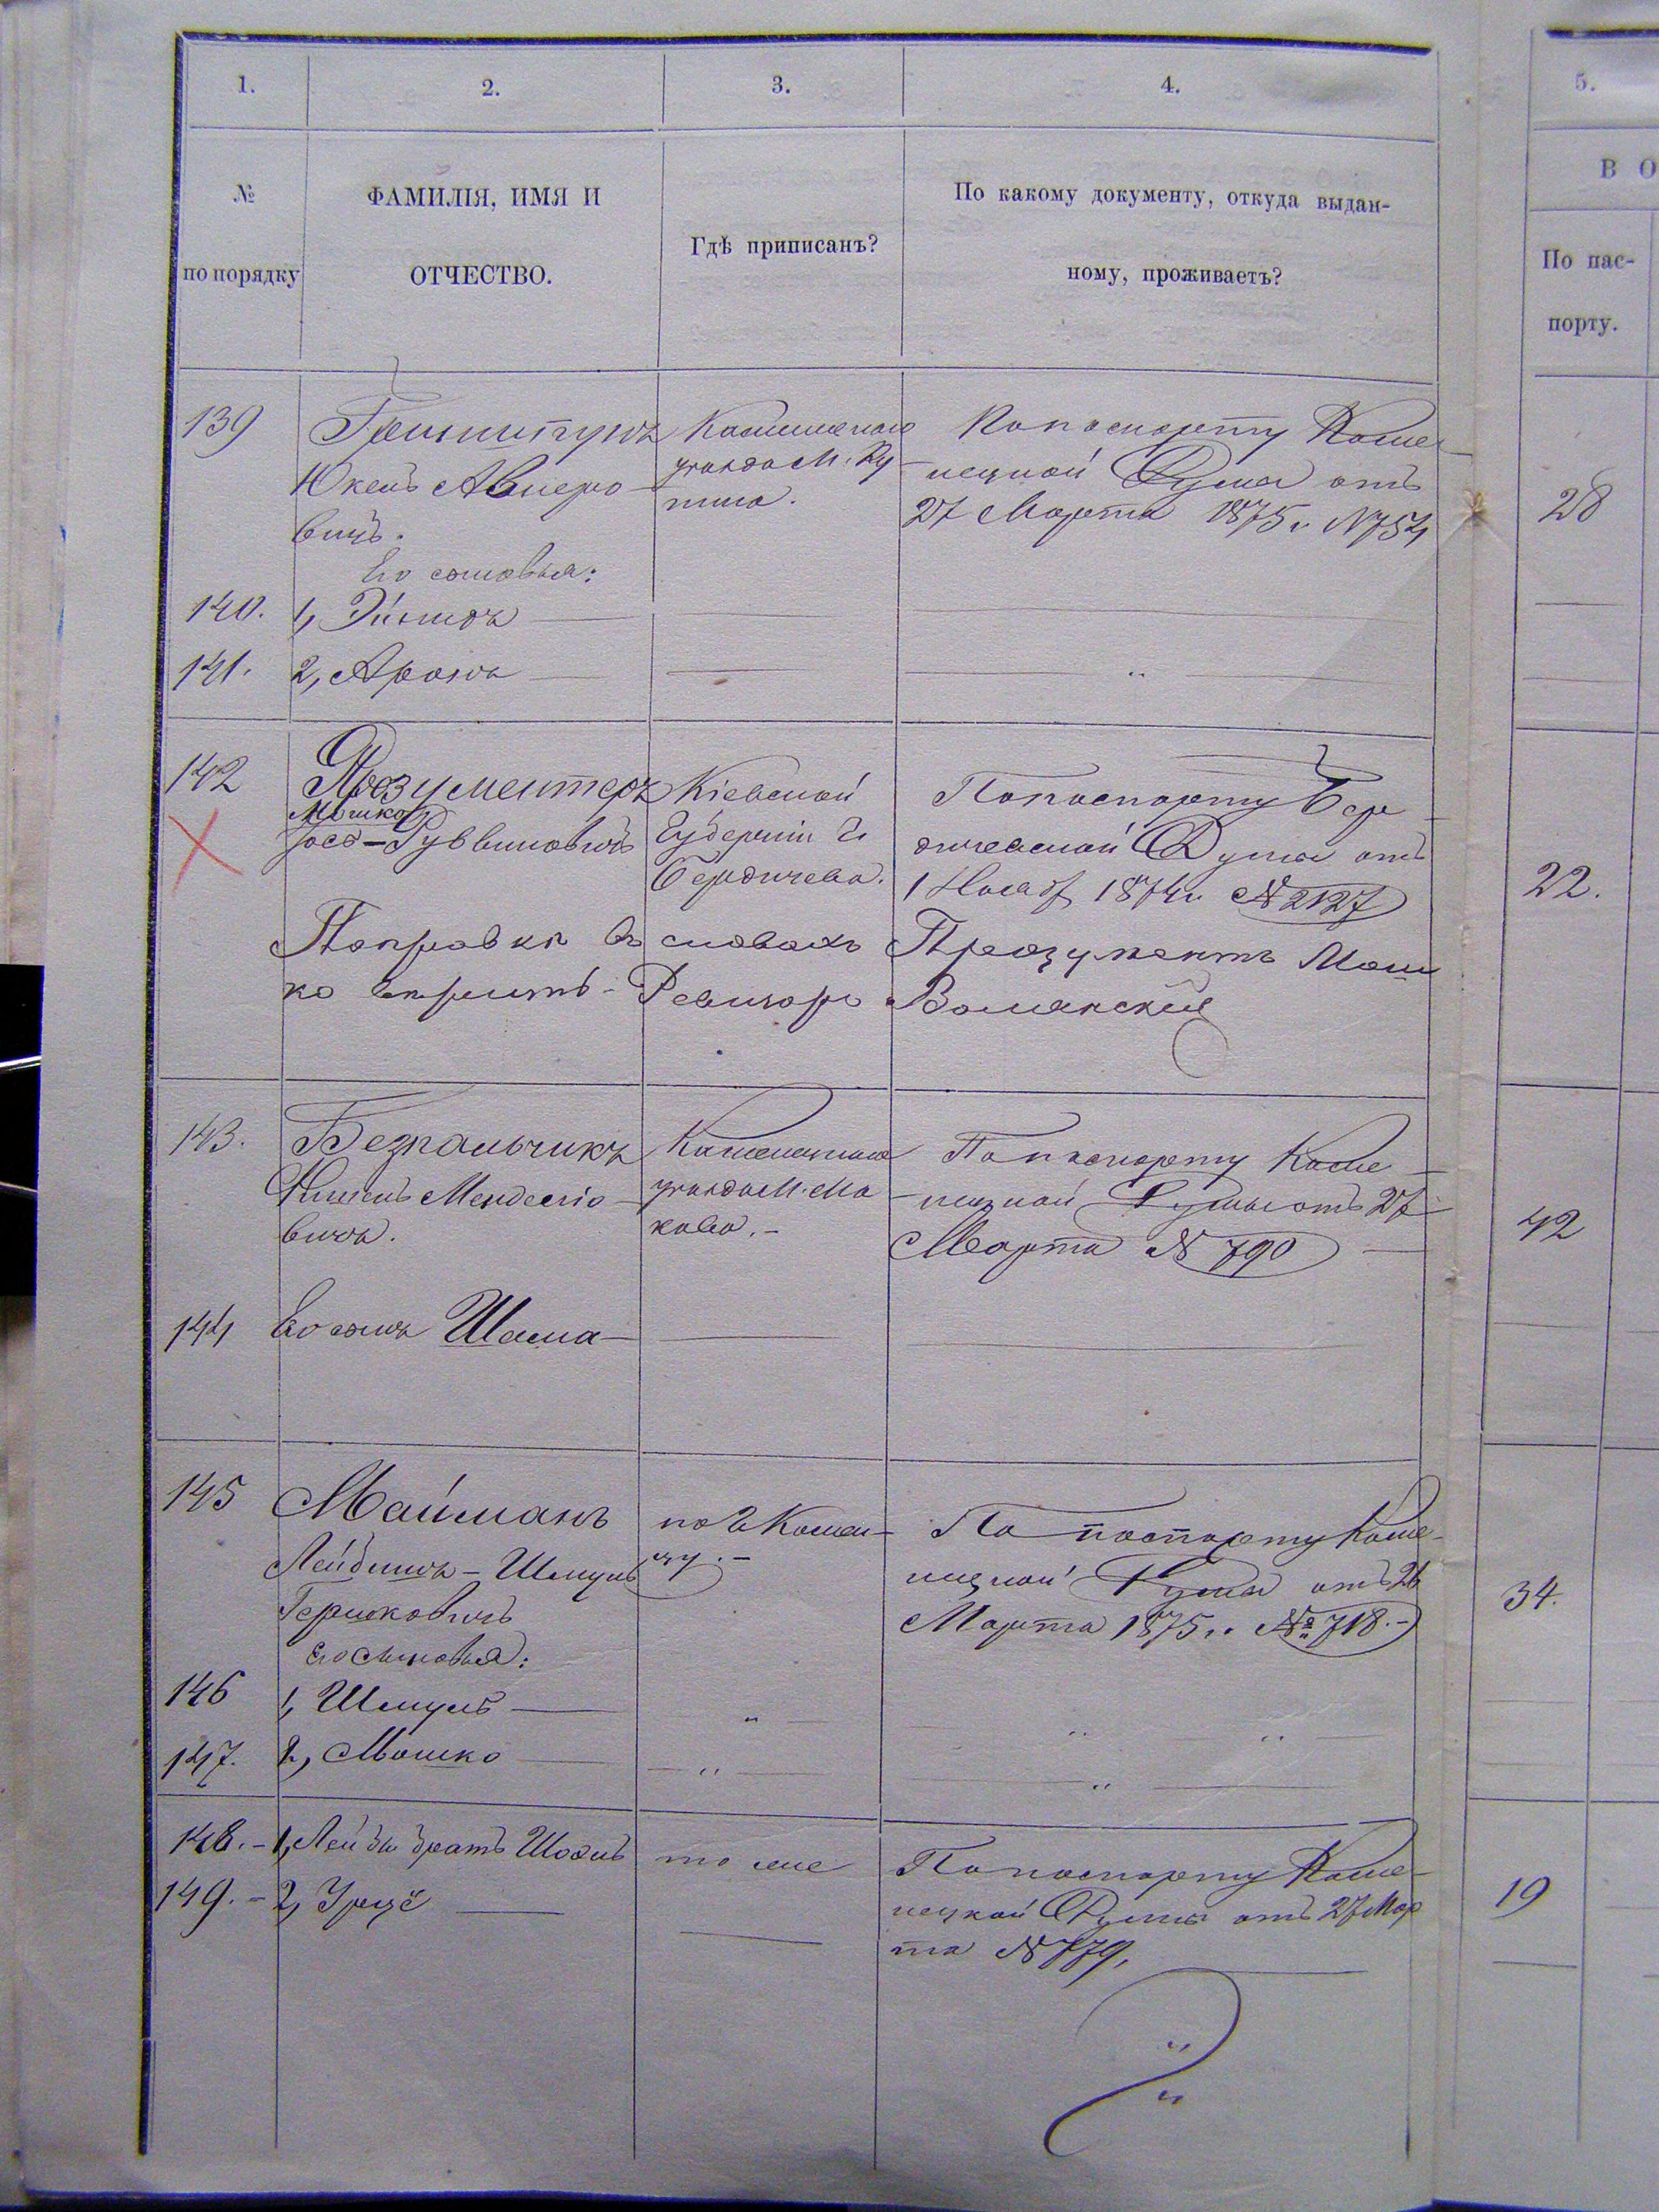 1. 2. 3. 4. 5.
№
по порядку
ФАМИЛІЯ, ИМЯ И
ОТЧЕСТВО.
Гдѣ приписанъ?
По какому документу, откуда выдан-
ному, проживаетъ?
В О
По пас-
порту.
139
Юкель Авнеро-
вичъ.
Его сыновья:
Каменецкаго
уѣзда М. Ку
пина.
По паспорту Каме-
нецкой Думы отъ
27 Марта 1875 г. №754
28
140. 1,
141. 2, Аронъ
142 Прозументеръ
Мошко
Іосъ-Рувиновичъ
Кіевской
Губерніи г.
Бердичева.
По паспорту Бер-
дичевской Думы отъ
1 Нояб. 1874 г. №2127
22.
Поправки въ словахъ Прозументъ Мош
ко вѣрить - Ревизоръ
143. Безпальчикъ
Менделіо-
вичъ.
Каменецкаго
уѣзда М. Ма
кова. -
По паспорту Каме-
нецкой Думы отъ 27
Марта № 790
42
144 Его сынъ Шама
145 Майманъ
Лейбишъ-Шмуль
Гершковичъ
его сыновья:
по г. Камен-
цу. -
По паспорту Каме-
нецкой Думы отъ 26
Марта 1875 г. №718. -
34.
146 1, Шмуль „ „ „
147. 2, Мошко „ „
148. - 1, братъ
149. - 2,
то же
По паспорту Каме-
нецкой Думы отъ 27 Мар
та №779,
19